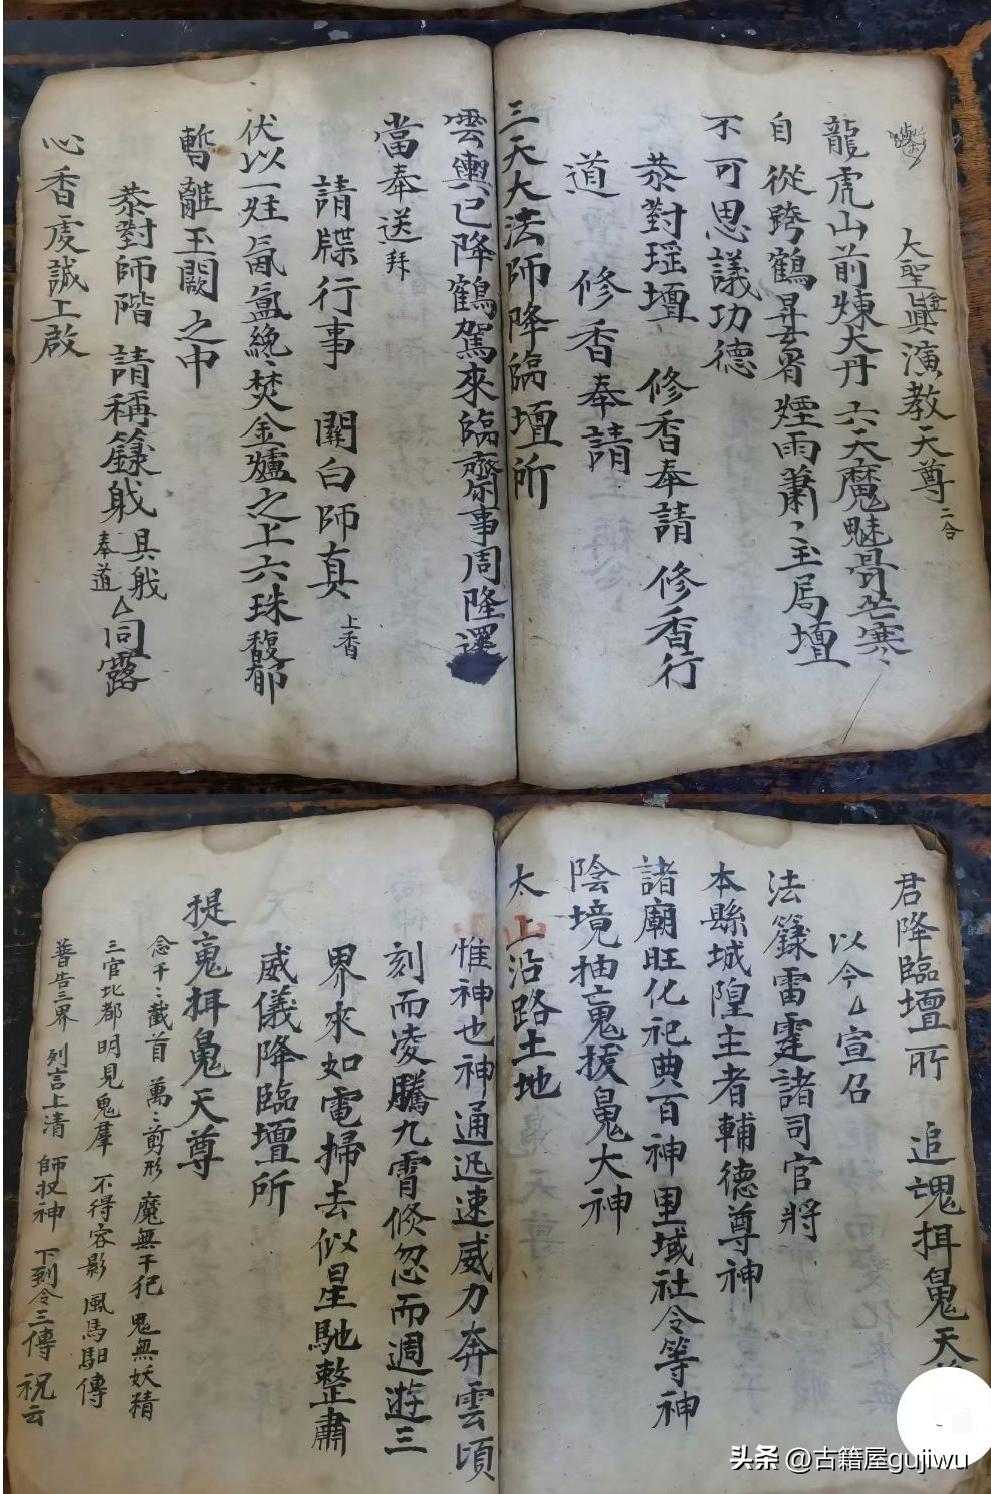 大聖眞演教天尊 二合
龍虎山前煉大丹 六天魔魅骨芒寒〻
自從跨鶴昇雲霄 煙雨蕭〻玉局壇
不可思議功德
恭對瑶壇 修香奉請 修香行
道 修香奉請
三天大法師降臨壇所
雲輿已降鶴駕來臨齋事周隆還
當奉送 拜
請牒行事 關白師真 上香
伏以一炷氤氳纔焚金爐之上六珠馥郁
暫離玉闕之中
恭對師階 請稱籙職 具職 奉道厶同露
心香虔誠上啟
君降臨壇所 追魂揖鬼天
以今厶宣召
法籙雷霆諸司官將
本縣城隍主者輔德尊神
諸廟旺化祀典百神里域社令等神
陰境抽䰟拔鬼大神
太上沿路土地
惟神也神通迅速威力奔雲頃
刻而凌騰九霄倏忽而週遊三
界來如電掃去似星馳整肅
威儀降臨壇所
提䰟揖鬼天尊
念千〻截首 萬〻剪形 魔無干犯 鬼無妖精
三官北都 明見鬼羣 不得容影 風馬馹傳
普告三界 列言上清 師收神 下到令三傳 祝云
头条 @古籍屋gujiwu